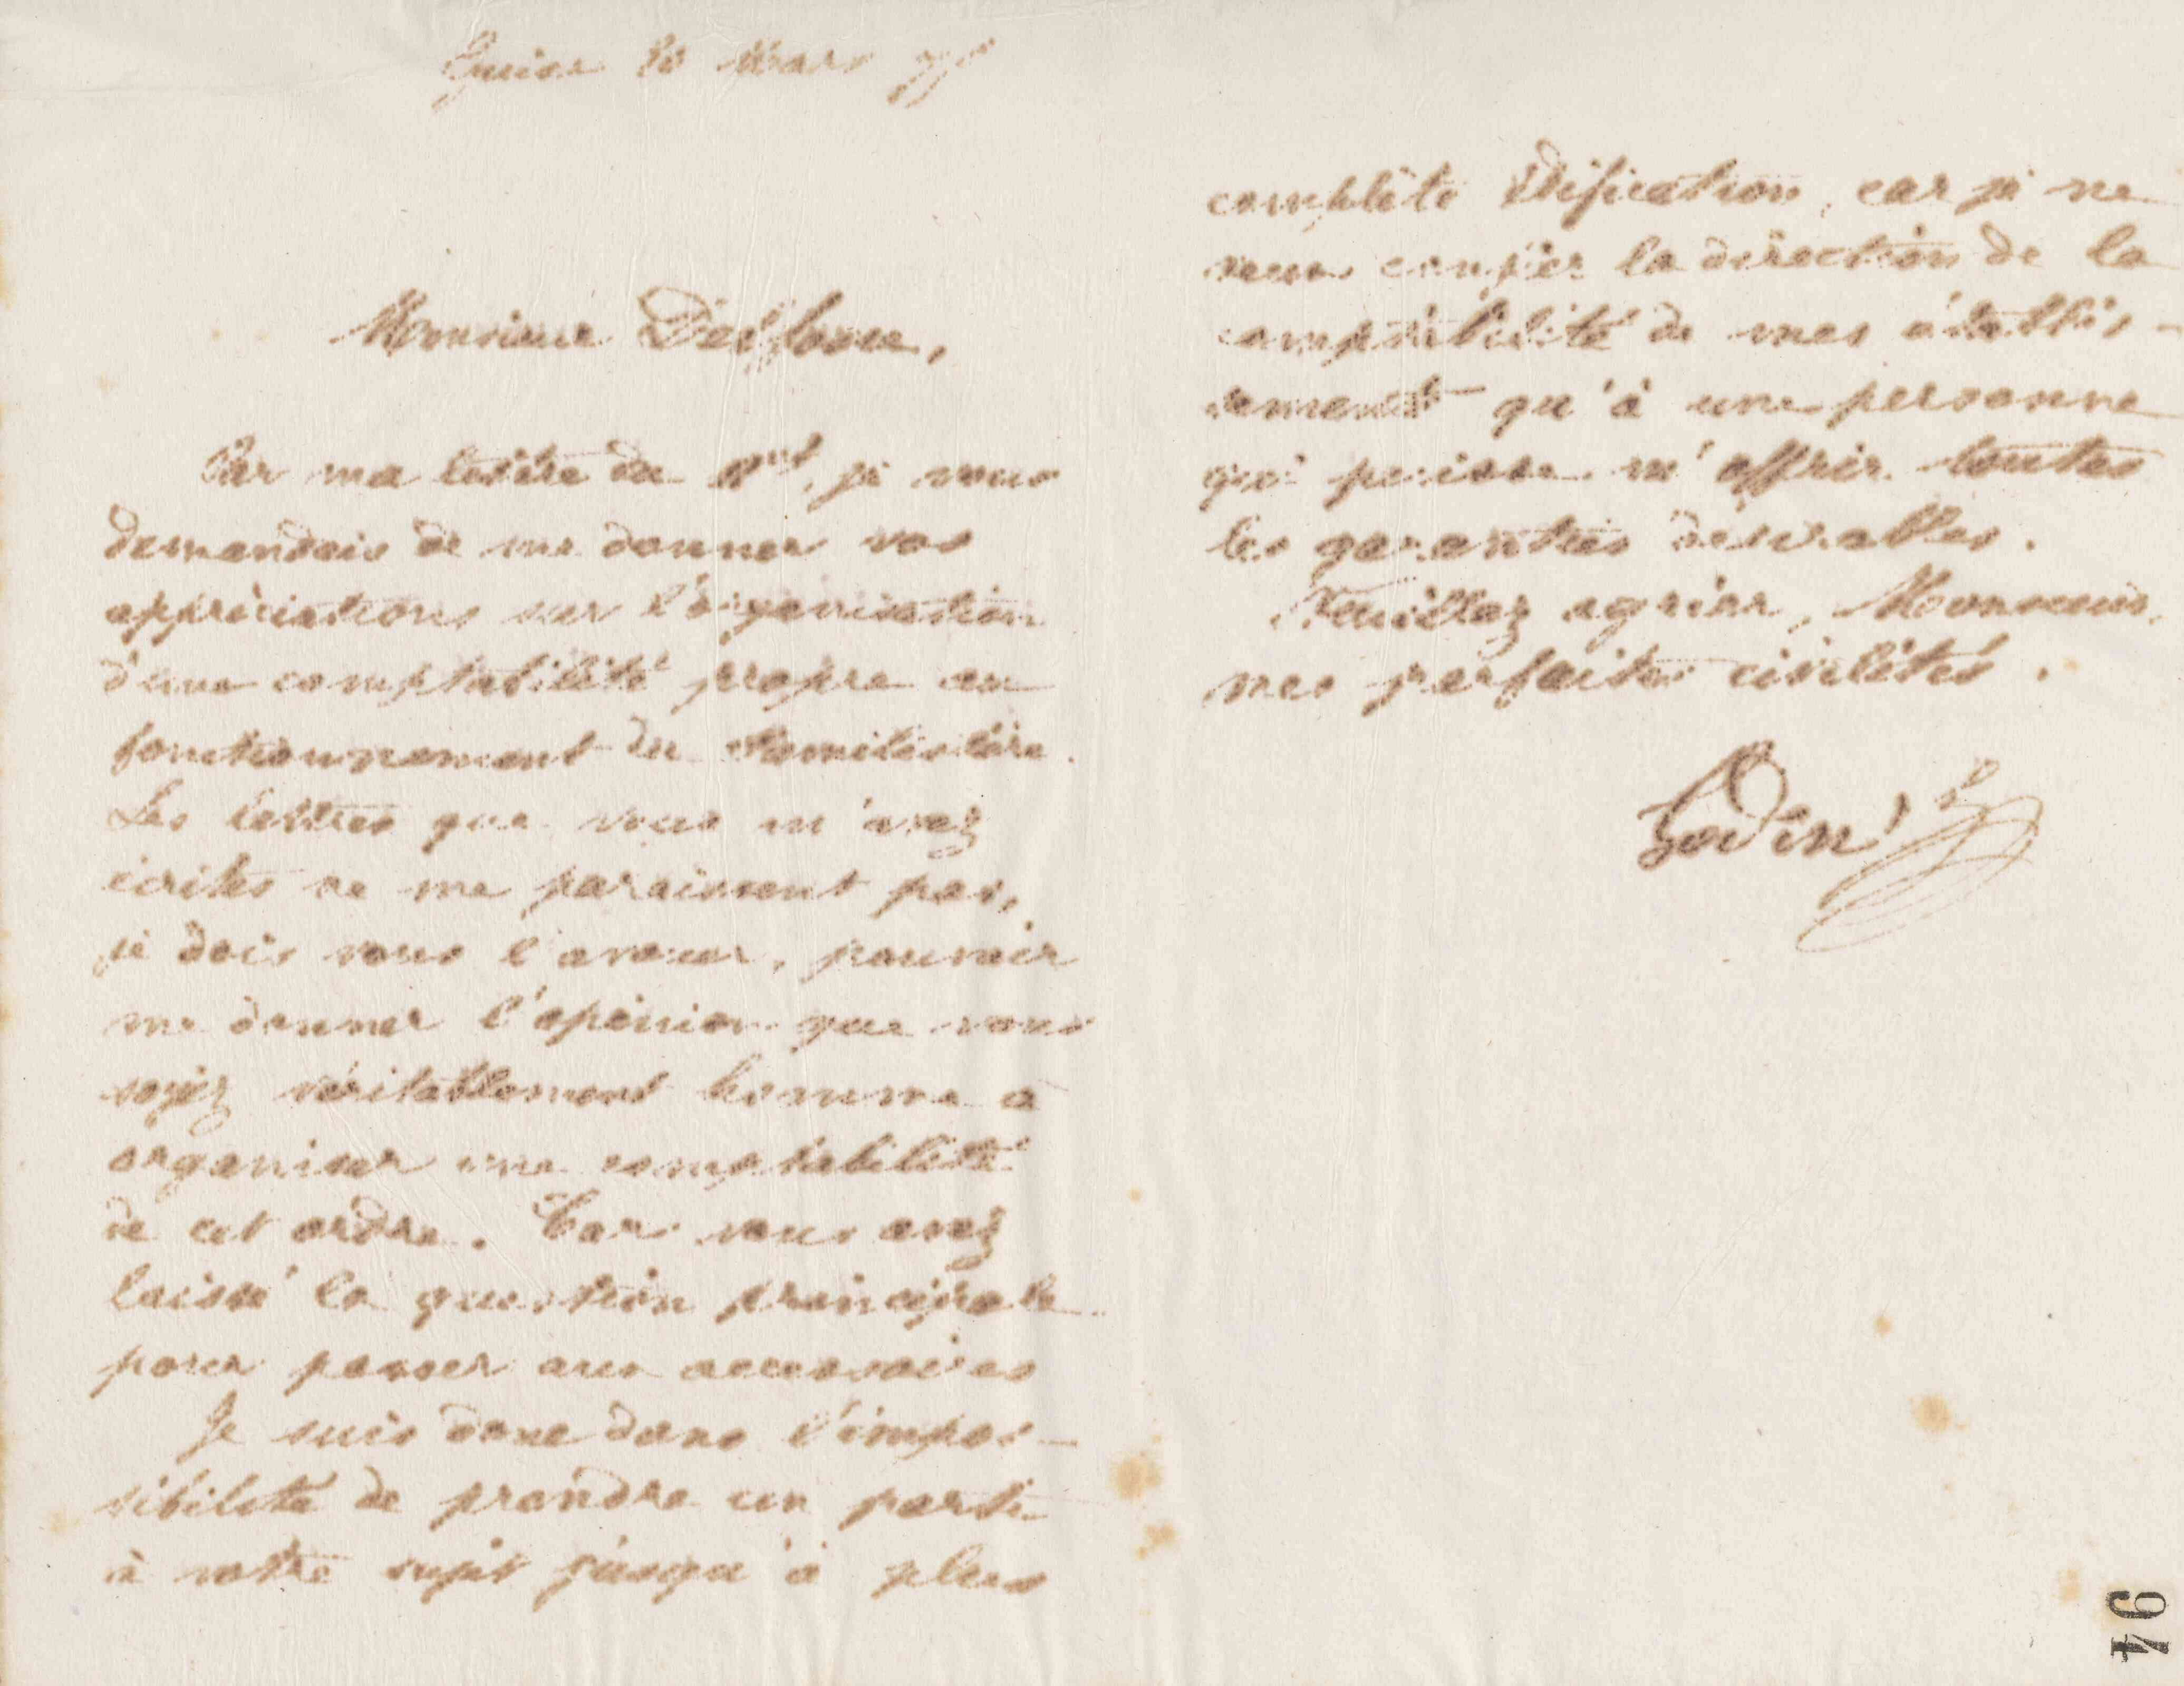 Guise 20 Mars 75
Monsieur
Par ma lettre du je vous
demandais de me donner vos
appréciations sur l'organisation
d'une comptabilité propre au
fonctionnement du Familistère.
Les lettres que vous m'avez
écrites ne me paraissent pas,
je dois vous l'avouer, pouvoir
me donner l'opinion que vous
soyez véritablement homme à
organiser une comptabilité
de cet ordre. Car vous avez
laissé la question principale
pour passer aux accessoires
Je suis donc dans l'impos-
sibilité de prendre un parti
à votre sujet jusqu'à plus
complète édification, car je ne
veux confier la direction de la
comptabilité de mes établis-
sements qu'à une personne
qui puisse m'offrir toutes
les garanties désirables.
Veuillez agréer, Monsieur,
mes parfaites civilités.
Godin
94